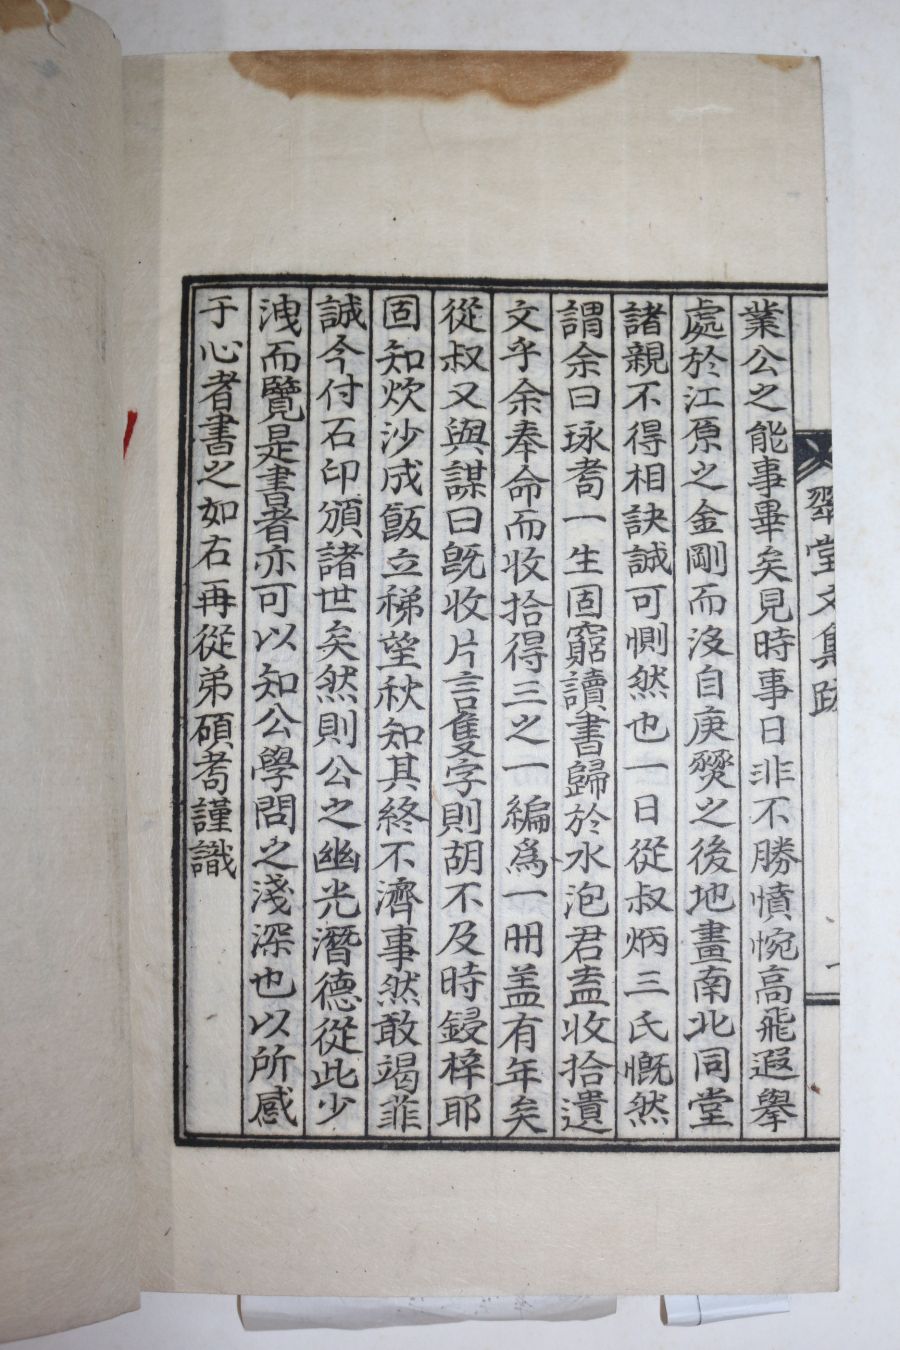 堂文集跋
業公之能事畢矣見時事日非不勝憤惋高飛遐擧
處於江原之金剛而沒自庚燹之後地畫南北同堂
諸親不得相訣誠可惻然也一日從叔炳三氏慨然
謂余曰琢耈一生固窮讀書歸於水泡君盍收拾遺
文乎余奉命而收拾得三之一編爲一冊盖有年矣
從叔又與謀曰旣收片言隻字則胡不及時鋟梓耶
固知炊沙成飯立稊望秋知其終不濟事然敢竭菲
誠今付石印頒諸世矣然則公之幽光潛德從此少
洩而覽是書者亦可以知公學問之淺深也以所感
于心者書之如右再從弟碩耈謹識